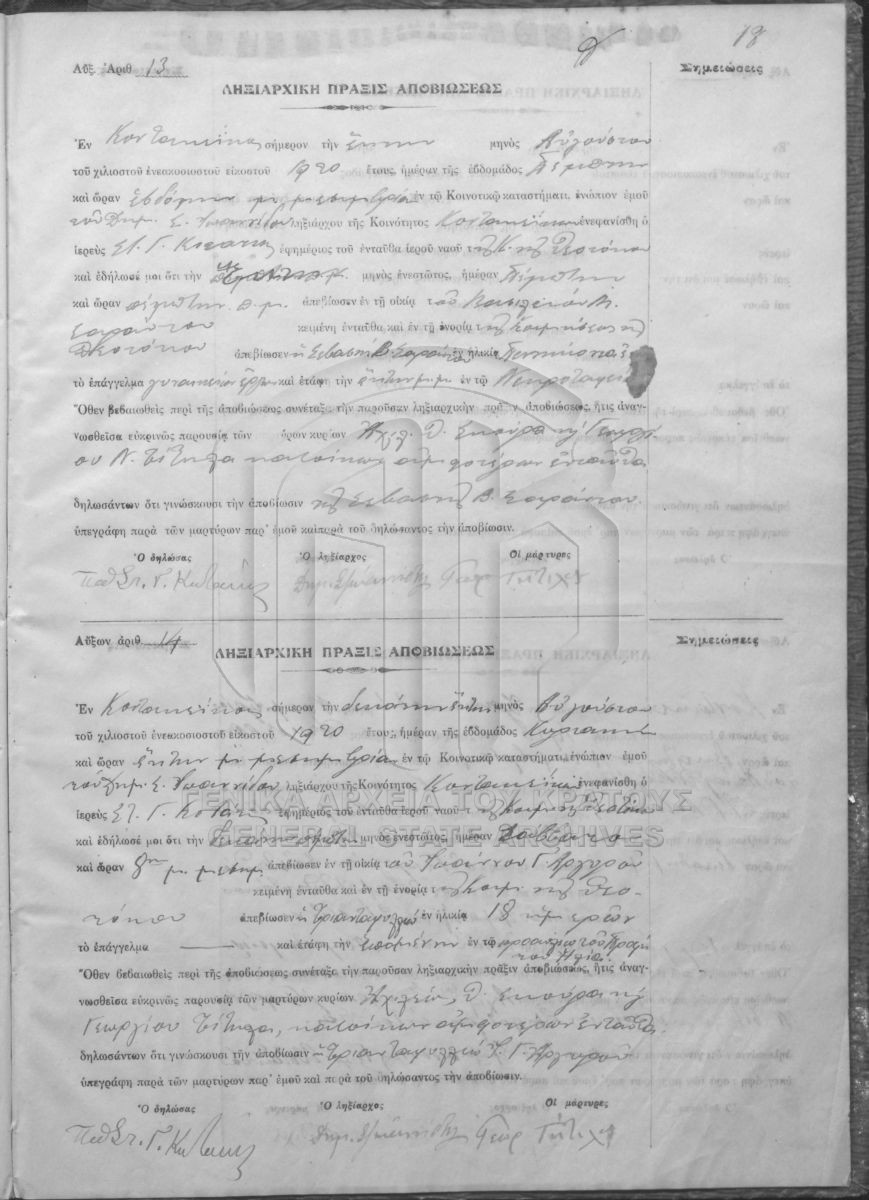 18
Αὔξ. Ἀριθ 13
Σημειώσεις
ΛΗΞΙΑΡΧΙΚΗ ΠΡΑΞΙΣ ΑΠΟΒΙΩΣΕΩΣ
Ἐν σήμερον τὴν ἕκτην μηνὸς Αὐγούστου
τοῦ χιλιοστοῦ ἐνεακοσιοστοῦ εἰκοστοῦ 1920 ἔτους, ἡμέραν τῆς ἑβδομάδος Πέμπτην
καὶ ὥραν ἑβδόμην μ. μεσημβρίαν ἐν τῷ Κοινοτικῷ καταστήματι, ἐνώπιον ἐμοῦ
τοῦ Δημ. Σ. Ἰωαννίδου ληξιάρχου τῆς Κοινότητος ἐνεφανίσθη ὁ
ἱερεὺς Στ. Γ. ἐφημέριος τοῦ ἐνταῦθα ἱεροῦ ναοῦ τῆς Κ. τῆς Θεοτόκου
καὶ ἐδήλωσέ μοι ὅτι τὴν μηνὸς ἐνεστῶτος, ἡμέραν Πέμπτην
καὶ ὥραν πέμπτην π.μ. ἀπεβίωσεν ἐν τῇ οἰκίᾳ τοῦ Βασιλείου
Σαράντου κειμένη ἐνταῦθα καὶ ἐν τῇ ἐνορίᾳ τῆς Κοιμήσεως τῆς
Θεοτόκου ἀπεβίωσεν ἡ Σεβαστὴ Β. Σαράντου ἐν ἡλικίᾳ
τὸ ἐπάγγελμα γυναικεῖα ἔργα καὶ ἐτάφη τὴν ἕκτην μ.μ. ἐν τῷ Νεκροταφείῳ
Ὅθεν βεβαιωθεὶς περὶ τῆς ἀποβιώσεως συνέταξα τὴν παροῦσαν ληξιαρχικὴν πρᾶξιν ἀποβιώσεως, ἥτις ἀναγ-
νωσθεῖσα εὐκρινῶς παρουσίᾳ τῶν μαρτύρων κυρίων Ἀχιλ. Δ. Σκούρα κ Γεωργί-
ου Ν. κατοίκων ἀμφοτέρων ἐνταῦθα
δηλωσάντων ὅτι γινώσκουσι τὴν ἀποβίωσιν τῆς Σεβαστῆς Β. Σαράντου
ὑπεγράφη παρὰ τῶν μαρτύρων παρ' ἐμοῦ καὶ παρὰ τοῦ δηλώσαντος τὴν ἀποβίωσιν.
Ὁ δηλώσας Ὁ ληξίαρχος Οἱ μάρτυρες
Παπ Στ. Γ. Δημ. Σ. Ἰωαννίδης Γεωρ
Αὔξων ἀριθ. 14
ΛΗΞΙΑΡΧΙΚΗ ΠΡΑΞΙΣ ΑΠΟΒΙΩΣΕΩΣ
Σημειώσεις
Ἐν σήμερον τὴν δεκάτην ἕκτην μηνὸς Αὐγούστου
τοῦ χιλιοστοῦ ἐνεακοσιοστοῦ εἰκοστοῦ 1920 ἔτους, ἡμέραν τῆς ἑβδομάδος Κυριακὴν
καὶ ὥραν ἕκτην μ. μεσημβρίαν ἐν τῷ Κοινοτικῷ καταστήματι, ἐνώπιον ἐμοῦ
τοῦ Δημ. Σ. Ἰωαννίδου ληξιάρχου τῆς Κοινότητος ἐνεφανίσθη ὁ
ἱερεὺς Στ. Γ. ἐφημέριος τοῦ ἐνταῦθα ἱεροῦ ναοῦ τῆς Κοιμ. τῆς Θεοτόκου
ΓΕΝΙΚΑ ΑΡΧΕΙΑ ΤΟΥ ΚΡΑΤΟΥΣ
GENERAL STATE ARCHIVES
καὶ ἐδήλωσέ μοι ὅτι τὴν μηνὸς ἐνεστῶτος, ἡμέραν Σάββατον
καὶ ὥραν 8ην μ. μεσημ. ἀπεβίωσεν ἐν τῇ οἰκίᾳ τοῦ Ἰωάννου Γ. Ἀργυροῦ
κειμένη ἐνταῦθα καὶ ἐν τῇ ἐνορίᾳ τῆς Κοιμ. τῆς Θεο-
τόκου ἀπεβίωσεν ἡ Τριανταφυλλιὰ ἐν ἡλικίᾳ 18 ἡμερῶν
τὸ ἐπάγγελμα — καὶ ἐτάφη τὴν ἑπομένην ἐν τῷ προαυλίῳ τοῦ Προφή
του Ἠλία
Ὅθεν βεβαιωθεὶς περὶ τῆς ἀποβιώσεως συνέταξα τὴν παροῦσαν ληξιαρχικὴν πρᾶξιν ἀποβιώσεως, ἥτις ἀναγ-
νωσθεῖσα εὐκρινῶς παρουσίᾳ τῶν μαρτύρων κυρίων Ἀχιλέως Δ. Σκούρα κ
Γεωργίου κατοίκων ἀμφοτέρων ἐνταῦθα
δηλωσάντων ὅτι γινώσκουσι τὴν ἀποβίωσιν Τριανταφυλλιᾶς Ἰ. Γ. Ἀργυροῦ
ὑπεγράφη παρὰ τῶν μαρτύρων παρ' ἐμοῦ καὶ παρὰ τοῦ δηλώσαντος τὴν ἀποβίωσιν.
Ὁ δηλώσας Ὁ ληξίαρχος Οἱ μάρτυρες
Παπ Στ. Γ. Δημ. Σ. Ἰωαννίδης Γεωρ